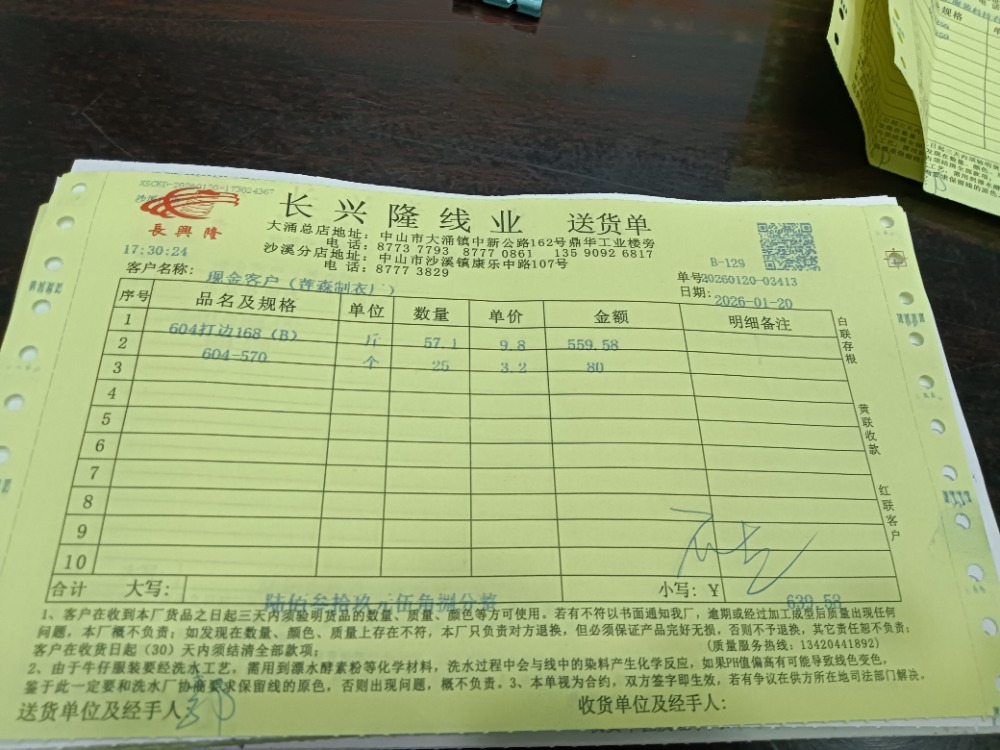 XSCKD-20260120-173024367
長興隆
长兴隆线业 送货单
大涌总店地址：中山市大涌镇中新公路162号鼎华工业楼旁
电话：8773 7793 8777 0861 135 9092 6817
沙溪分店地址：中山市沙溪镇康乐中路107号
电话：8777 3829
17:30:24
B-129
单号 20260120-03413
客户名称： 现金客户（莲森制衣厂）
日期： 2026-01-20
序号 品名及规格 单位 数量 单价 金额 明细备注
1 604打边168（B） 斤 57.1 9.8 559.58
2 604-570 个 25 3.2 80
3
4
5
6
7
8
9
10
白联存根
黄联收款
红联客户
合计 大写： 陆佰叁拾玖元伍角捌分整 小写：Y 639.58
1、客户在收到本厂货品之日起三天内须验明货品的数量、质量、颜色等方可使用。若有不符以书面通知我厂，逾期或经过加工成型后质量出现任何
问题，本厂概不负责；如发现在数量、颜色、质量上存在不符，本厂只负责对方退换，但必须保证产品完好无损，否则不予退换，其它责任恕不负责；
客户在收货日起（30）天内须结清全部款项； （质量服务热线：13420441892）
2、由于牛仔服装要经洗水工艺，需用到漂水酵素粉等化学材料，洗水过程中会与线中的染料产生化学反应，如果PH值偏高有可能导致线变色，
鉴于此一定要和洗水厂协商要求保留线的原色，否则出现问题，概不负责。3、本单视为合约，双方签字即生效，若有争议在供方所在地司法部门解决。
送货单位及经手人： 收货单位及经手人：
规格